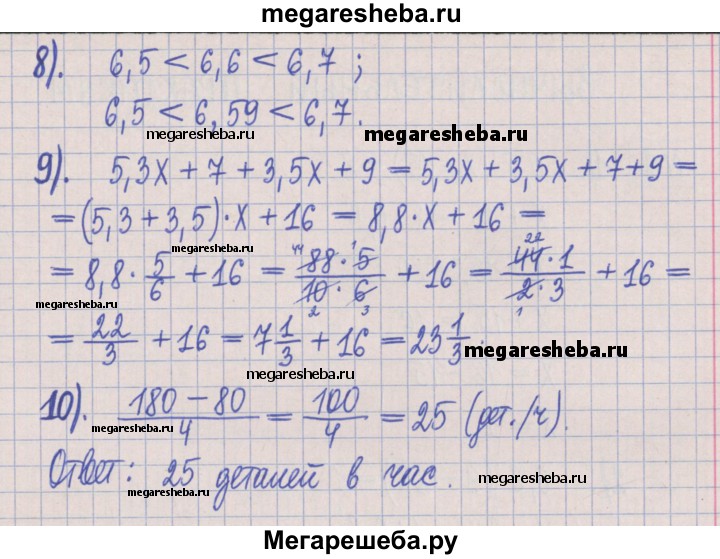 megaresheba.ru
8). 6,5 < 6,6 < 6,7 ;
6,5 < 6,59 < 6,7.
megaresheba.ru megaresheba.ru
9). 5,3x + 7 + 3,5x + 9 = 5,3x + 3,5x + 7+9 =
= (5,3 + 3,5)·x + 16 = 8,8·x + 16 =
megaresheba.ru
= 8,8 · 5/6 + 16 = 44 88 · 1 5 / 10 2 · 6 3 + 16 = 22 44 · 1 / 2 1 · 3 + 16 =
megaresheba.ru
= 22/3 + 16 = 7 1/3 + 16 = 23 1/3.
megaresheba.ru
megaresheba.ru
10). 180 − 80 / 4 = 100 / 4 = 25 (дет./ч).
megaresheba.ru
Ответ: 25 деталей в час.
megaresheba.ru
megaresheba.ru
Мегарешеба.ру